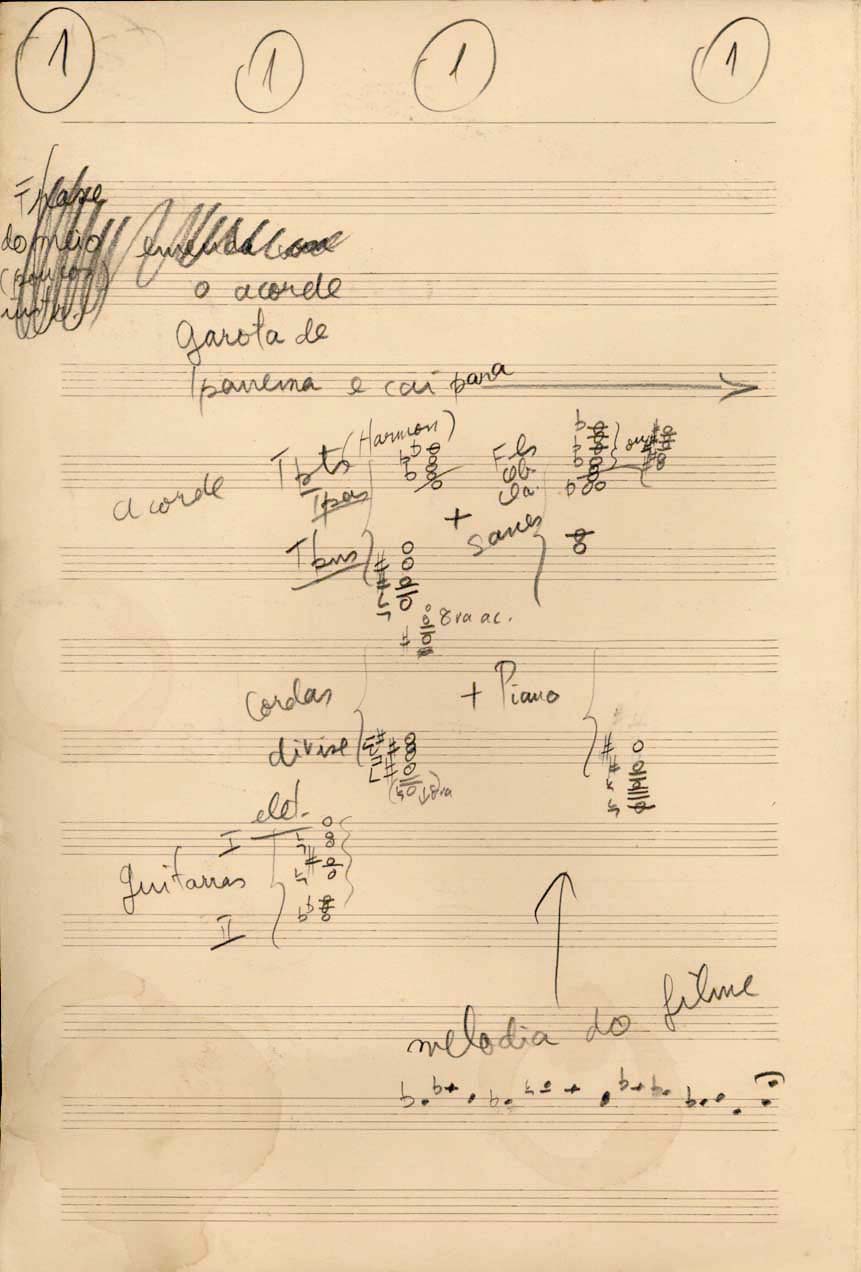 1 1 1 1
Frase
do meio
(poucos
instr.)
emenda com
o acorde
Garota de
Ipanema e cai para
acorde
Tpts (Harmon)
Tpas
Tbns
+
Fls
Ob.
Cla.
ou
saxes
8va ac.
Cordas
divise
+ Piano
8va
elet.
I
Guitarras
II
melodia do filme